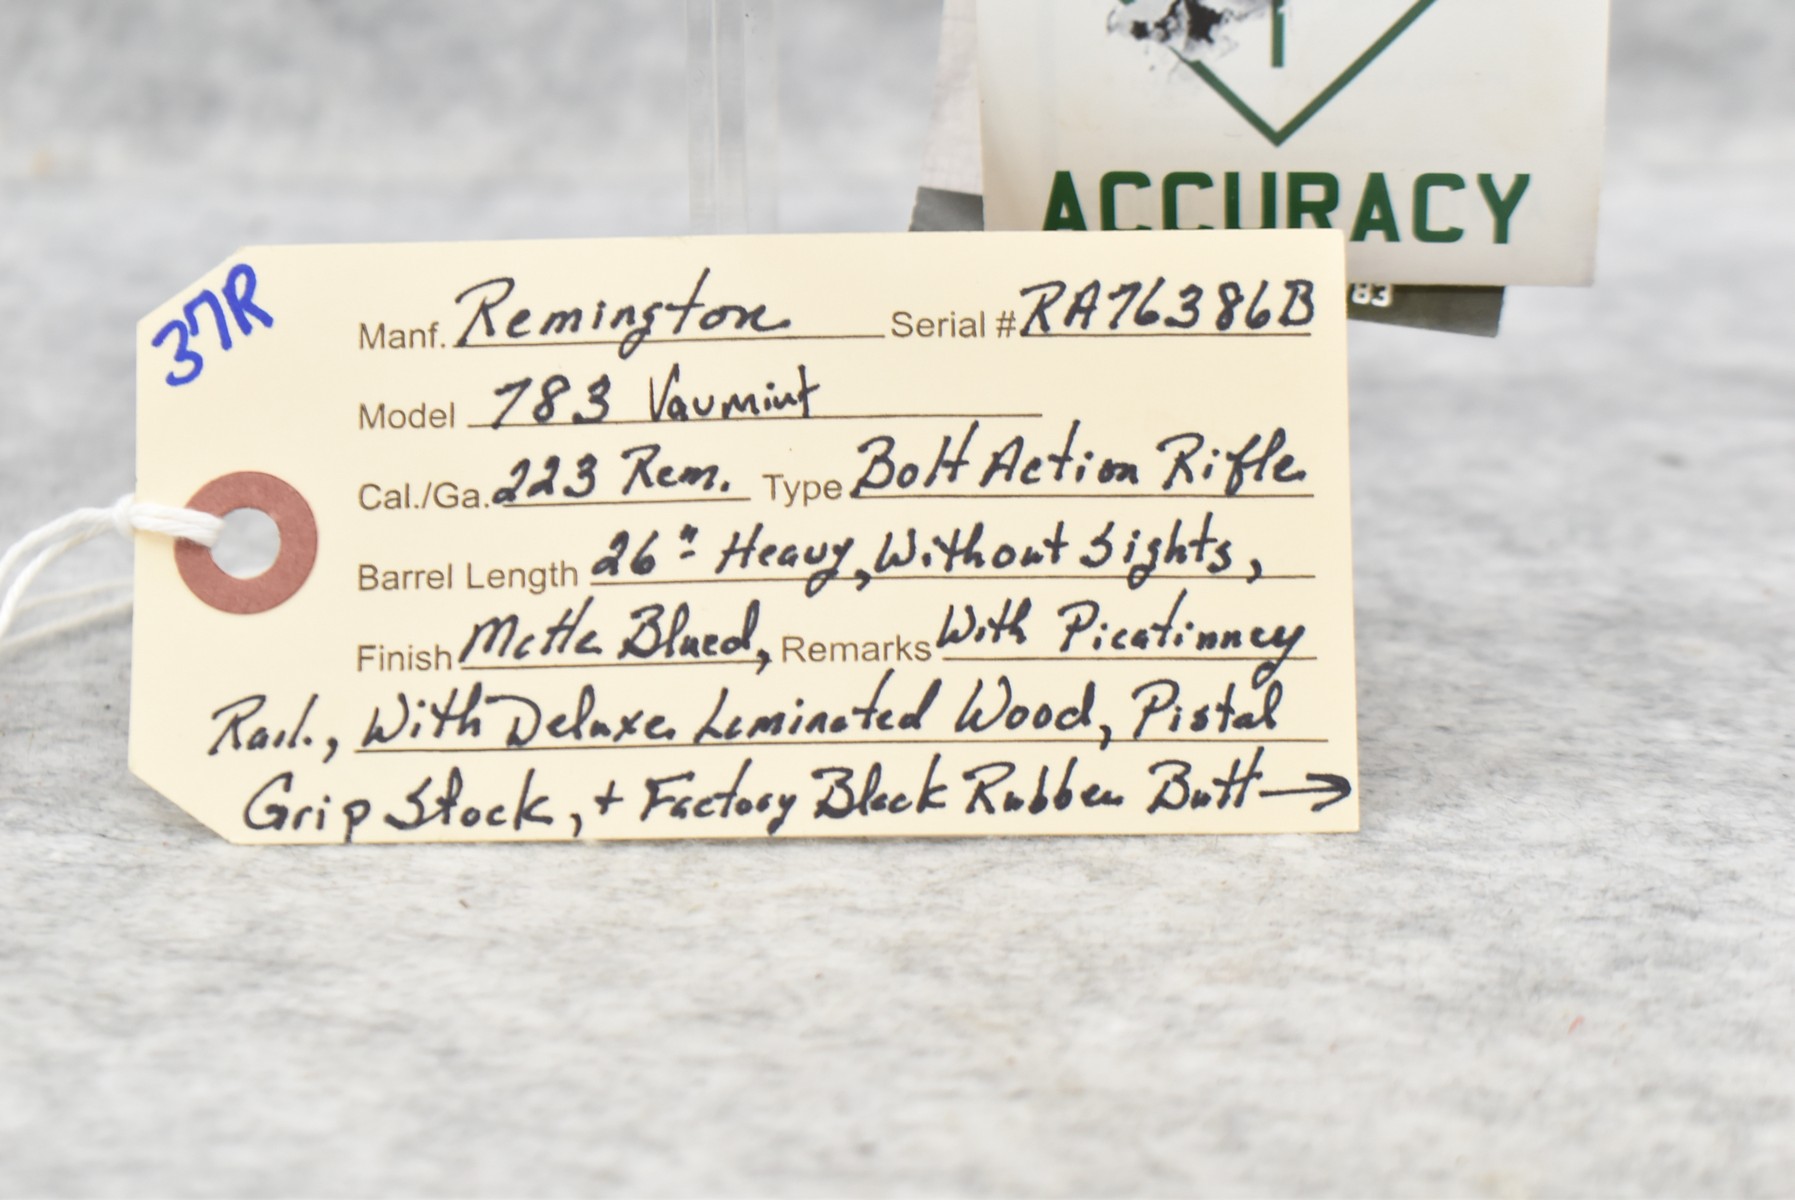 1
ACCURACY
83
37R
Manf. Remington Serial # RA76386B
Model 783 Vaumint
Cal./Ga. 223 Rem. Type Bolt Action Rifle
Barrel Length 26" Heavy, Without Sights,
Finish Matte Blued, Remarks With Picatinney
Rail, With Deluxe Laminated Wood, Pistal
Grip Stock, + Factory Black Rubber Butt →